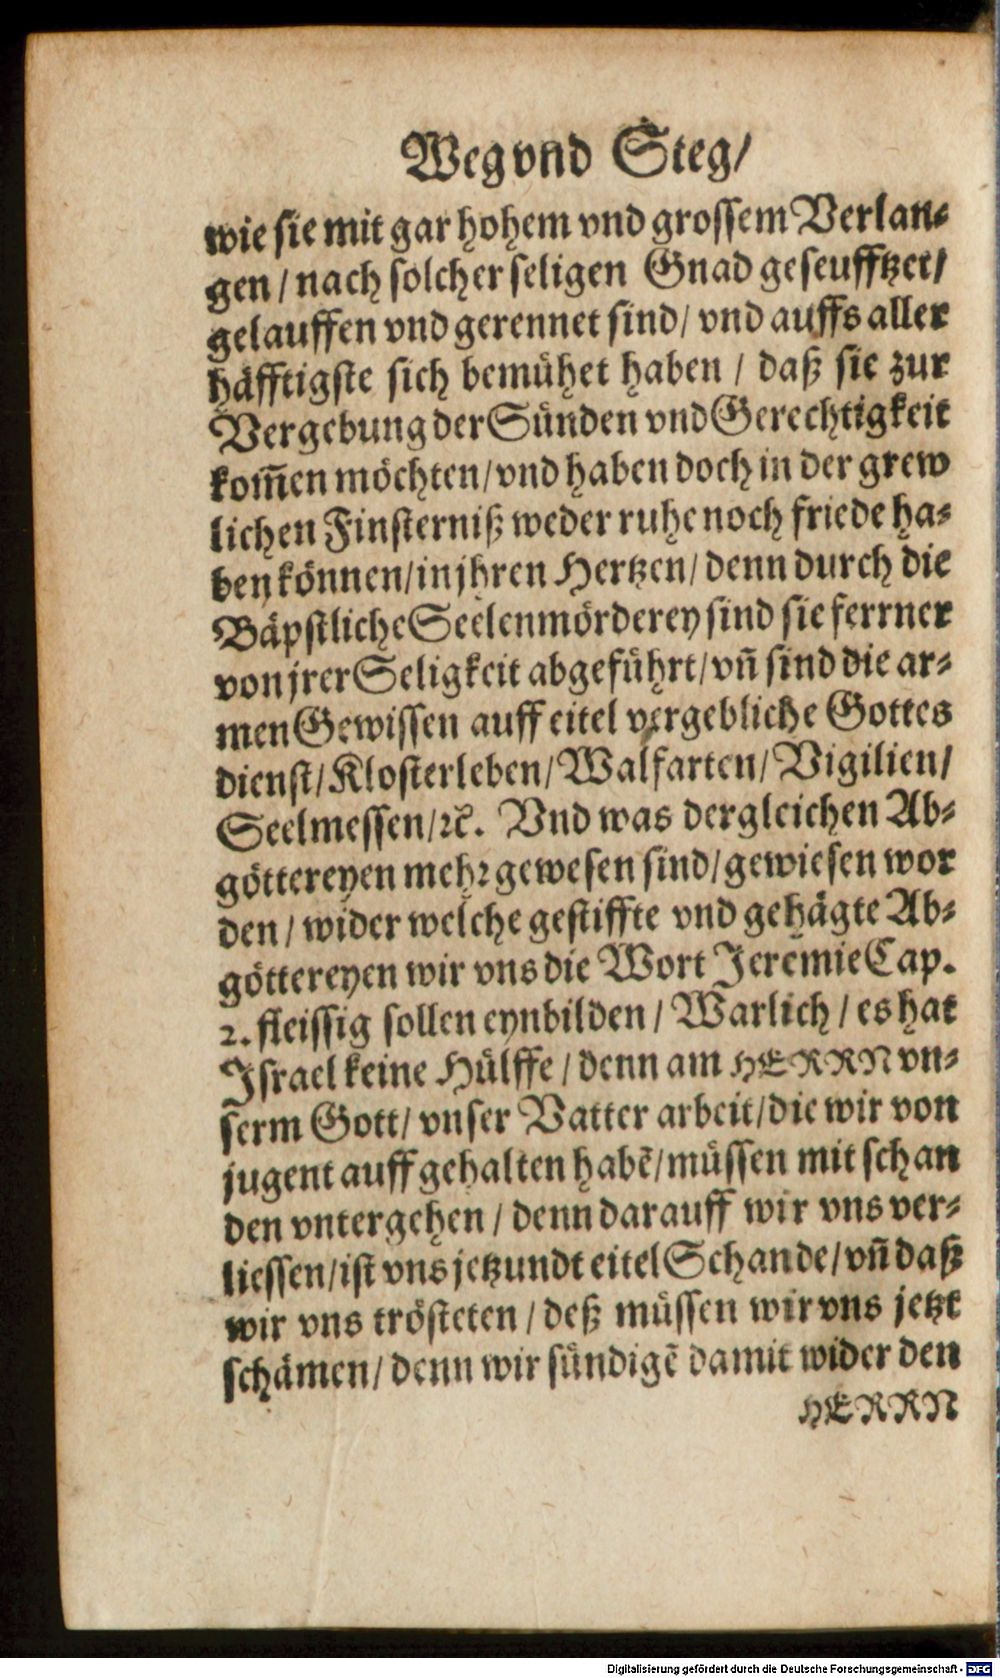 Weg vnd Steg/
wie sie mit gar hohem vnd grossem Verlan-
gen / nach solcher seligen Gnad geseufftzet/
gelauffen vnd gerennet sind/ vnd auffs aller
häfftigste sich bemühet haben / daß sie zur
Vergebung der Sünden vnd Gerechtigkeit
kom̃en möchten/ vnd haben doch in der grew
lichen Finsterniß weder ruhe noch friede ha-
ben können/ in jhren Hertzen/ denn durch die
Bäpstliche Seelenmörderey sind sie ferrner
von jrer Seligkeit abgeführt/ vñ sind die ar-
men Gewissen auff eitel vergebliche Gottes
dienst/ Klosterleben/ Walfarten/ Vigilien/
Seelmessen/ ꝛc̃. Vnd was dergleichen Ab-
göttereyen mehꝛ gewesen sind/ gewiesen wor
den / wider welche gestiffte vnd gehägte Ab-
göttereyen wir vns die Wort Jeremie Cap.
2. fleissig sollen eynbilden / Warlich / es hat
Israel keine Hülffe / denn am HERRN vn-
serm Gott/ vnser Vatter arbeit/ die wir von
jugent auff gehalten habẽ/ müssen mit schan
den vntergehen / denn darauff wir vns ver-
liessen/ ist vns jetzundt eitel Schande/ vñ daß
wir vns trösteten / deß müssen wir vns jetzt
schämen/ denn wir sündigẽ damit wider den
HERRN
Digitalisierung gefördert durch die Deutsche Forschungsgemeinschaft - DFG